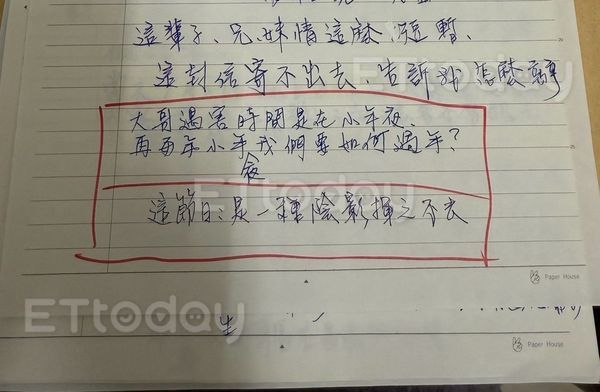 這輩子、兄妹情這麼短暫、
這封信寄不出去、告訴我怎麼辦
ETtoday
大哥遇害時間是在小年夜、
再每年小年我們要如何過年?
夜
ETtoday
這節日:是一種陰影揮之不去
Paper House
ETtoday
Paper House